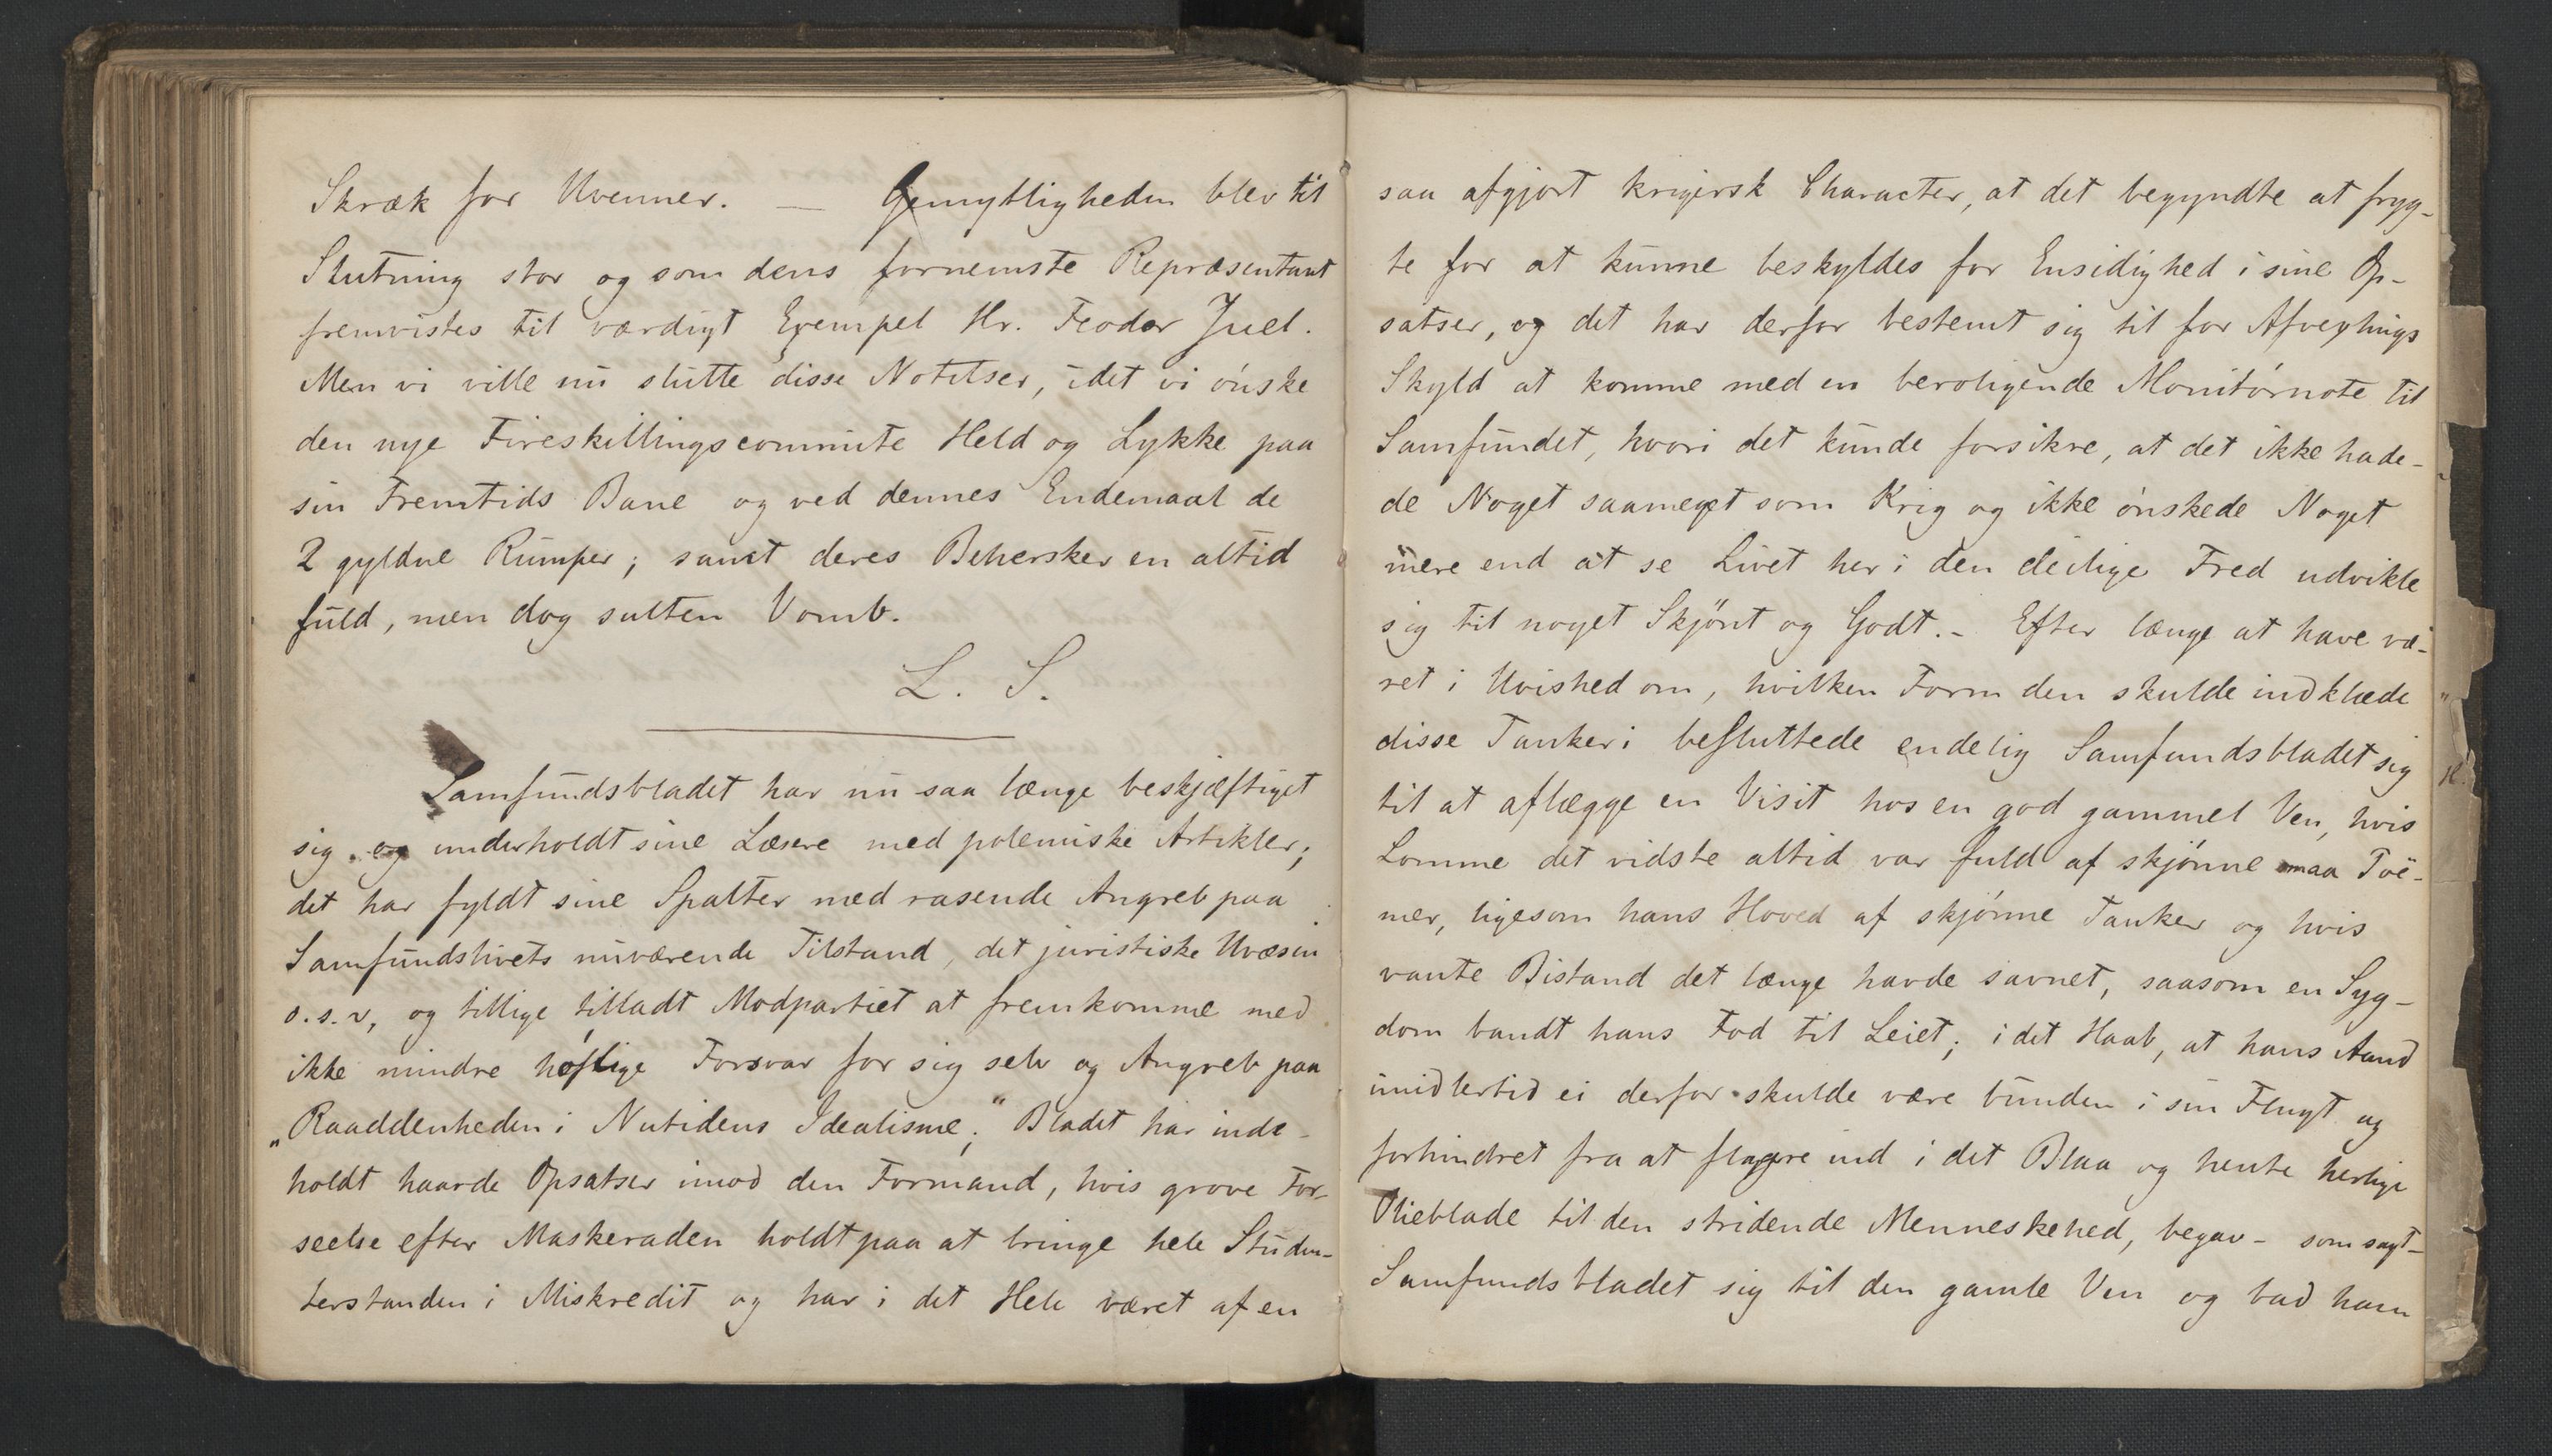 Skræk for Uvenner. — Gemytligheden blev til
Slutning stor og som dens fornemste Repræsentant
fremvistes til værdigt Exempel Hr. Feodor Juel.
Men vi ville nu slutte disse Notitser, idet vi ønske
den nye Fireskillingscommite Held og Lykke paa
sin Fremtids Bane og ved dennes Endemaal de
2 gyldne Rumper; samt deres Behersker en altid
fuld, men dog sulten Vomb.
L. S.
Samfundsbladet har nu saa længe beskjæftiget
sig og underholdt sine Læsere med polemiske Artikler;
det har fyldt sine Spalter med rasende Angreb paa
Samfundslivets nuværende Tilstand, det juristiske Uvæsen
o.s.v, og tillige tilladt Modpartiet at fremkomme med
ikke mindre høflige Forsvar for sig selv og Angreb paa
„Raaddenheden i Nutidens Idealisme;" Bladet har inde-
holdt haarde Opsatser imod den Formand, hvis grove For-
seelse efter Maskeraden holdt paa at bringe hele Studen-
terstanden i Miskredit og har i det Hele været af en
saa afgjort krigersk Character, at det begyndte at fryg-
te for at kunne beskyldes for Ensidighed i sine Op-
satser, og det har derfor bestemt sig til for Afvexlings
Skyld at komme med en beroligende Monitørnote til
Samfundet, hvori det kunde forsikre, at det ikke hade-
de Noget saameget som Krig og ikke ønskede Noget
mere end at se Livet her i den deilige Fred udvikle
sig til noget Skjønt og Godt. - Efter længe at have væ-
ret i Uvished om, hvilken Form den skulde indklæde
disse Tanker i besluttede endelig Samfundsbladet sig
til at aflægge en Visit hos en god gammel Ven, hvis
Lomme det vidste altid var fuld af skjønne smaa Poë-
mer, ligesom hans Hoved af skjønne Tanker og hvis
vante Bistand det længe havde savnet, saasom en Syg-
dom bandt hans Fod til Leiet; i det Haab, at hans Aand
imidlertid ei derfor skulde være bunden i sin Flugt og
forhindret fra at flagre ind i det Blaa og hente herlige
Olieblade til den stridende Menneskehed, begav - som sagt -
Samfundsbladet sig til den gamle Ven og bad ham